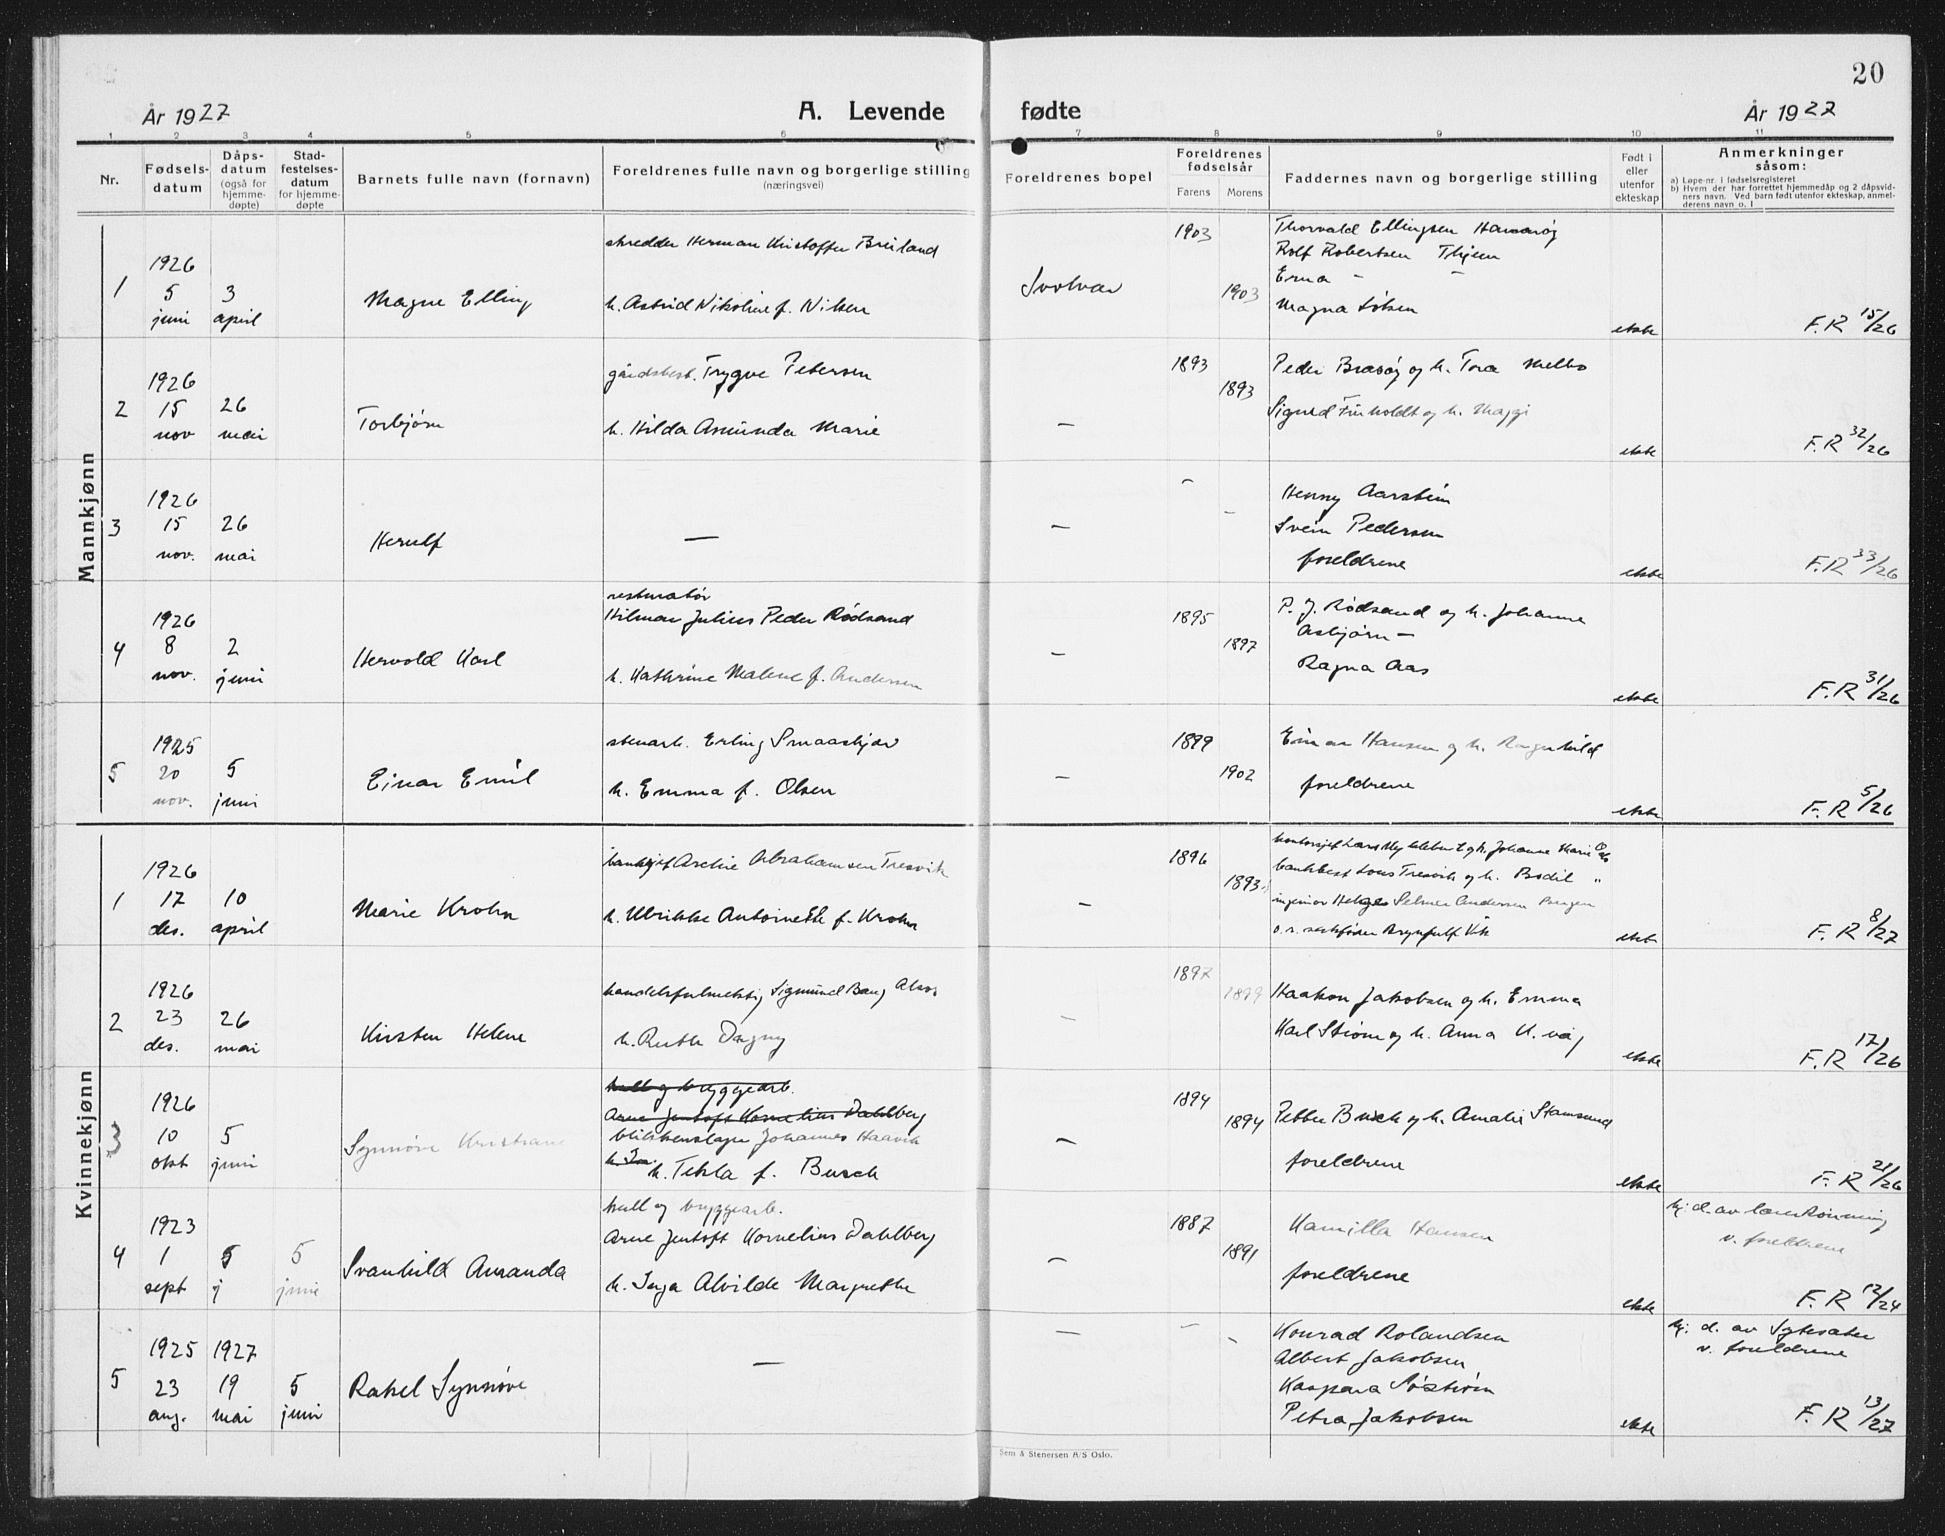 20
År 1927 A. Levende fødte År 1927
1 2 3 4 5 6 7 8 9 10 11
Nr.
Fødsels-
datum
Dåps-
datum
(også for
hjemme-
døpte)
Stad-
festelses-
datum
for hjemme-
døpte
Barnets fulle navn (fornavn)
Foreldrenes fulle navn og borgerlige stilling
(næringsvei)
Foreldrenes bopel
Foreldrenes
fødselsår
Farens Morens
Faddernes navn og borgerlige stilling
Født i
eller
utenfor
ekteskap
Anmerkninger
såsom:
a) Løpe-nr. i fødselsregisteret
b) Hvem der har forrettet hjemmedåp og 2 dåpsvid-
ners navn. Ved barn født utenfor ekteskap, anmel-
derens navn o. l
Mannkjønn
1
1926
5
juni
3
april
Magne Elling
skredder Herman Kristoffer Breiland
h. Astrid Nikoline f. Nilsen
Svolvær
1903
1903
Thorvald Ellingsen Hamarøy
Rolf Robertsen
Erna —
Magna
ekte
F.R 15/26
2
1926
15
nov
26
mai
Torbjørn
gårdsbest. Trygve Petersen
h. Hilda Amunda Marie
—
1893
1893
Peder og h. Tora Melbo
Sigurd og h.
ekte
F.R 32/26
3
1926
15
nov.
26
mai
Herulf
—
—
—
—
Henny Aarstein
Svein Pedersen
foreldrene
ekte
F.R 33/26
4
1926
8
nov.
2
juni
Hervold Karl
restauratør
Hilmar Julius Peder Rødsand
h. Kathrine Malene f. Andersen
—
1895
1897
P. J. Rødsand og h. Johanne
Asbjørn —
Ragna Aas
ekte
F.R 31/26
5
1925
20
nov.
5
juni
Einar Emil
stenarb. Erling
h. Emma f. Olsen
—
1899
1902
Einar Hansen og h. Ragnhild
foreldrene
ekte
F.R 5/26
Kvinnekjønn
1
1926
17
des.
10
april
Marie Krohn
banksjef Archie Abrahamsen Tresvik
h. Ulrikke Antoinette f. Krohn
—
1896
1893
kontorsjef Lars og h. Johanne Marie
bankbest Tresvik og h. Bodil "
ingeniør Helge Selmer Andersen
o.r. sakfører Brynjulf Vik
ekte
F.R 8/27
2
1926
23
des.
26
mai
Kirsten Helene
handelsfullmektig Sigmund
h. Ruth Dagny
—
1897
1899
Haakon Jakobsen og h. Emma
Karl Strøm og h. Anna
ekte
F.R 17/26
3
1926
10
okt
5
juni
Synnøve Kristiane
kull og bryggearb.
Arne Jentoft Kornelius Dahlberg
blikkenslager Johannes Haavik
h. Tekla f. Busch
—
1894
1894
Petter Busch og h. Amalie Stamsund
foreldrene
ekte
F.R 21/26
4
1923
1
sept
5
j
5
juni
Svanhild Amanda
kull og bryggearb.
Arne Jentoft Kornelius Dahlberg
h. Inga Alvilde Margrethe
—
1887
1891
Kamilla Hansen
foreldrene
ekte
hj. d. av lærer Rønning
v. foreldrene
F.R 12/24
5
1925
23
aug.
1927
19
mai
5
juni
Rakel Synnøve
—
—
—
—
Konrad Rolandsen
Albert Jakobsen
Kaspara Sjøstrøm
Petra Jakobsen
ekte
hj. d. av
v. foreldrene
F.R 13/27
Sem & Stenersen A/S Oslo.